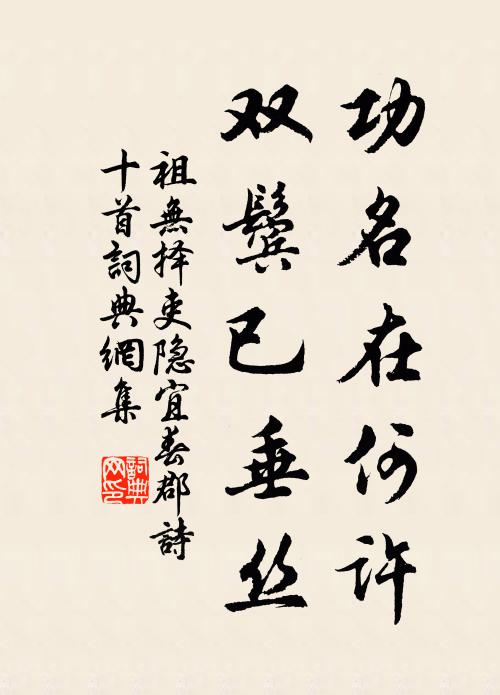 功名在何许
双鬓已垂丝
祖無择吏隐宜春郡詩
十首詞典網集
詞典网印